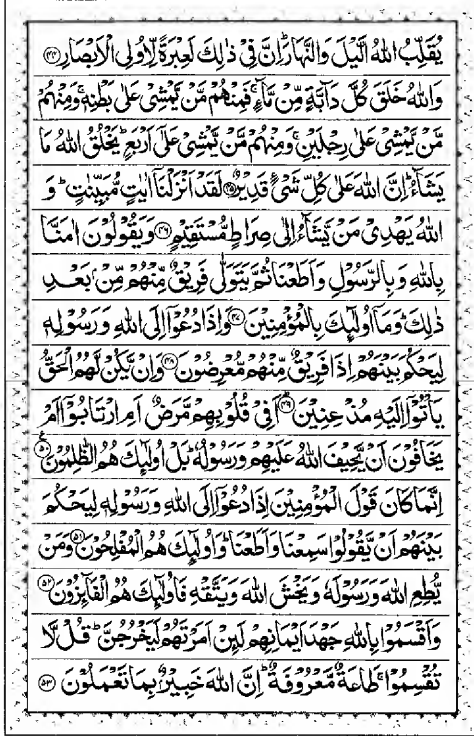 يُقَلِّبُ اللهُ الَّيْلَ وَالنَّهَارَ ؕ اِنَّ فِيْ ذٰلِكَ لَعِبْرَةً لِّاُولِي الْاَبْصَارِ ﴿۴۴﴾
وَاللهُ خَلَقَ كُلَّ دَآبَّةٍ مِّنْ مَّآءٍ ۚ فَمِنْهُمْ مَّنْ يَّمْشِيْ عَلٰى بَطْنِهٖ ۚ وَمِنْهُمْ
مَّنْ يَّمْشِيْ عَلٰى رِجْلَيْنِ ۚ وَمِنْهُمْ مَّنْ يَّمْشِيْ عَلٰٓى اَرْبَعٍ ؕ يَخْلُقُ اللهُ مَا
يَشَآءُ ؕ اِنَّ اللهَ عَلٰى كُلِّ شَيْءٍ قَدِيْرٌ ﴿۴۵﴾ لَقَدْ اَنْزَلْنَاۤ اٰيٰتٍ مُّبَيِّنٰتٍ ؕ وَ
اللهُ يَهْدِيْ مَنْ يَّشَآءُ اِلٰى صِرَاطٍ مُّسْتَقِيْمٍ ﴿۴۶﴾ وَيَقُوْلُوْنَ اٰمَنَّا
بِاللهِ وَبِالرَّسُوْلِ وَاَطَعْنَا ثُمَّ يَتَوَلّٰى فَرِيْقٌ مِّنْهُمْ مِّنْ ۢ بَعْدِ
ذٰلِكَ ؕ وَمَاۤ اُولٰٓئِكَ بِالْمُؤْمِنِيْنَ ﴿۴۷﴾ وَاِذَا دُعُوْۤا اِلَى اللهِ وَرَسُوْلِهٖ
لِيَحْكُمَ بَيْنَهُمْ اِذَا فَرِيْقٌ مِّنْهُمْ مُّعْرِضُوْنَ ﴿۴۸﴾ وَاِنْ يَّكُنْ لَّهُمُ الْحَقُّ
يَاْتُوْۤا اِلَيْهِ مُذْعِنِيْنَ ﴿۴۹﴾ اَفِيْ قُلُوْبِهِمْ مَّرَضٌ اَمِ ارْتَابُوْۤا اَمْ
يَخَافُوْنَ اَنْ يَّحِيْفَ اللهُ عَلَيْهِمْ وَرَسُوْلُهٗ ؕ بَلْ اُولٰٓئِكَ هُمُ الظّٰلِمُوْنَ ﴿۵۰﴾ ع
اِنَّمَا كَانَ قَوْلَ الْمُؤْمِنِيْنَ اِذَا دُعُوْۤا اِلَى اللهِ وَرَسُوْلِهٖ لِيَحْكُمَ
بَيْنَهُمْ اَنْ يَّقُوْلُوْا سَمِعْنَا وَاَطَعْنَا ؕ وَاُولٰٓئِكَ هُمُ الْمُفْلِحُوْنَ ﴿۵۱﴾ وَمَنْ
يُّطِعِ اللهَ وَرَسُوْلَهٗ وَيَخْشَ اللهَ وَيَتَّقْهِ فَاُولٰٓئِكَ هُمُ الْفَآئِزُوْنَ ﴿۵۲﴾
وَاَقْسَمُوْا بِاللهِ جَهْدَ اَيْمَانِهِمْ لَئِنْ اَمَرْتَهُمْ لَيَخْرُجُنَّ ؕ قُلْ لَّا
تُقْسِمُوْا ۚ طَاعَةٌ مَّعْرُوْفَةٌ ؕ اِنَّ اللهَ خَبِيْرٌۢ بِمَا تَعْمَلُوْنَ ﴿۵۳﴾